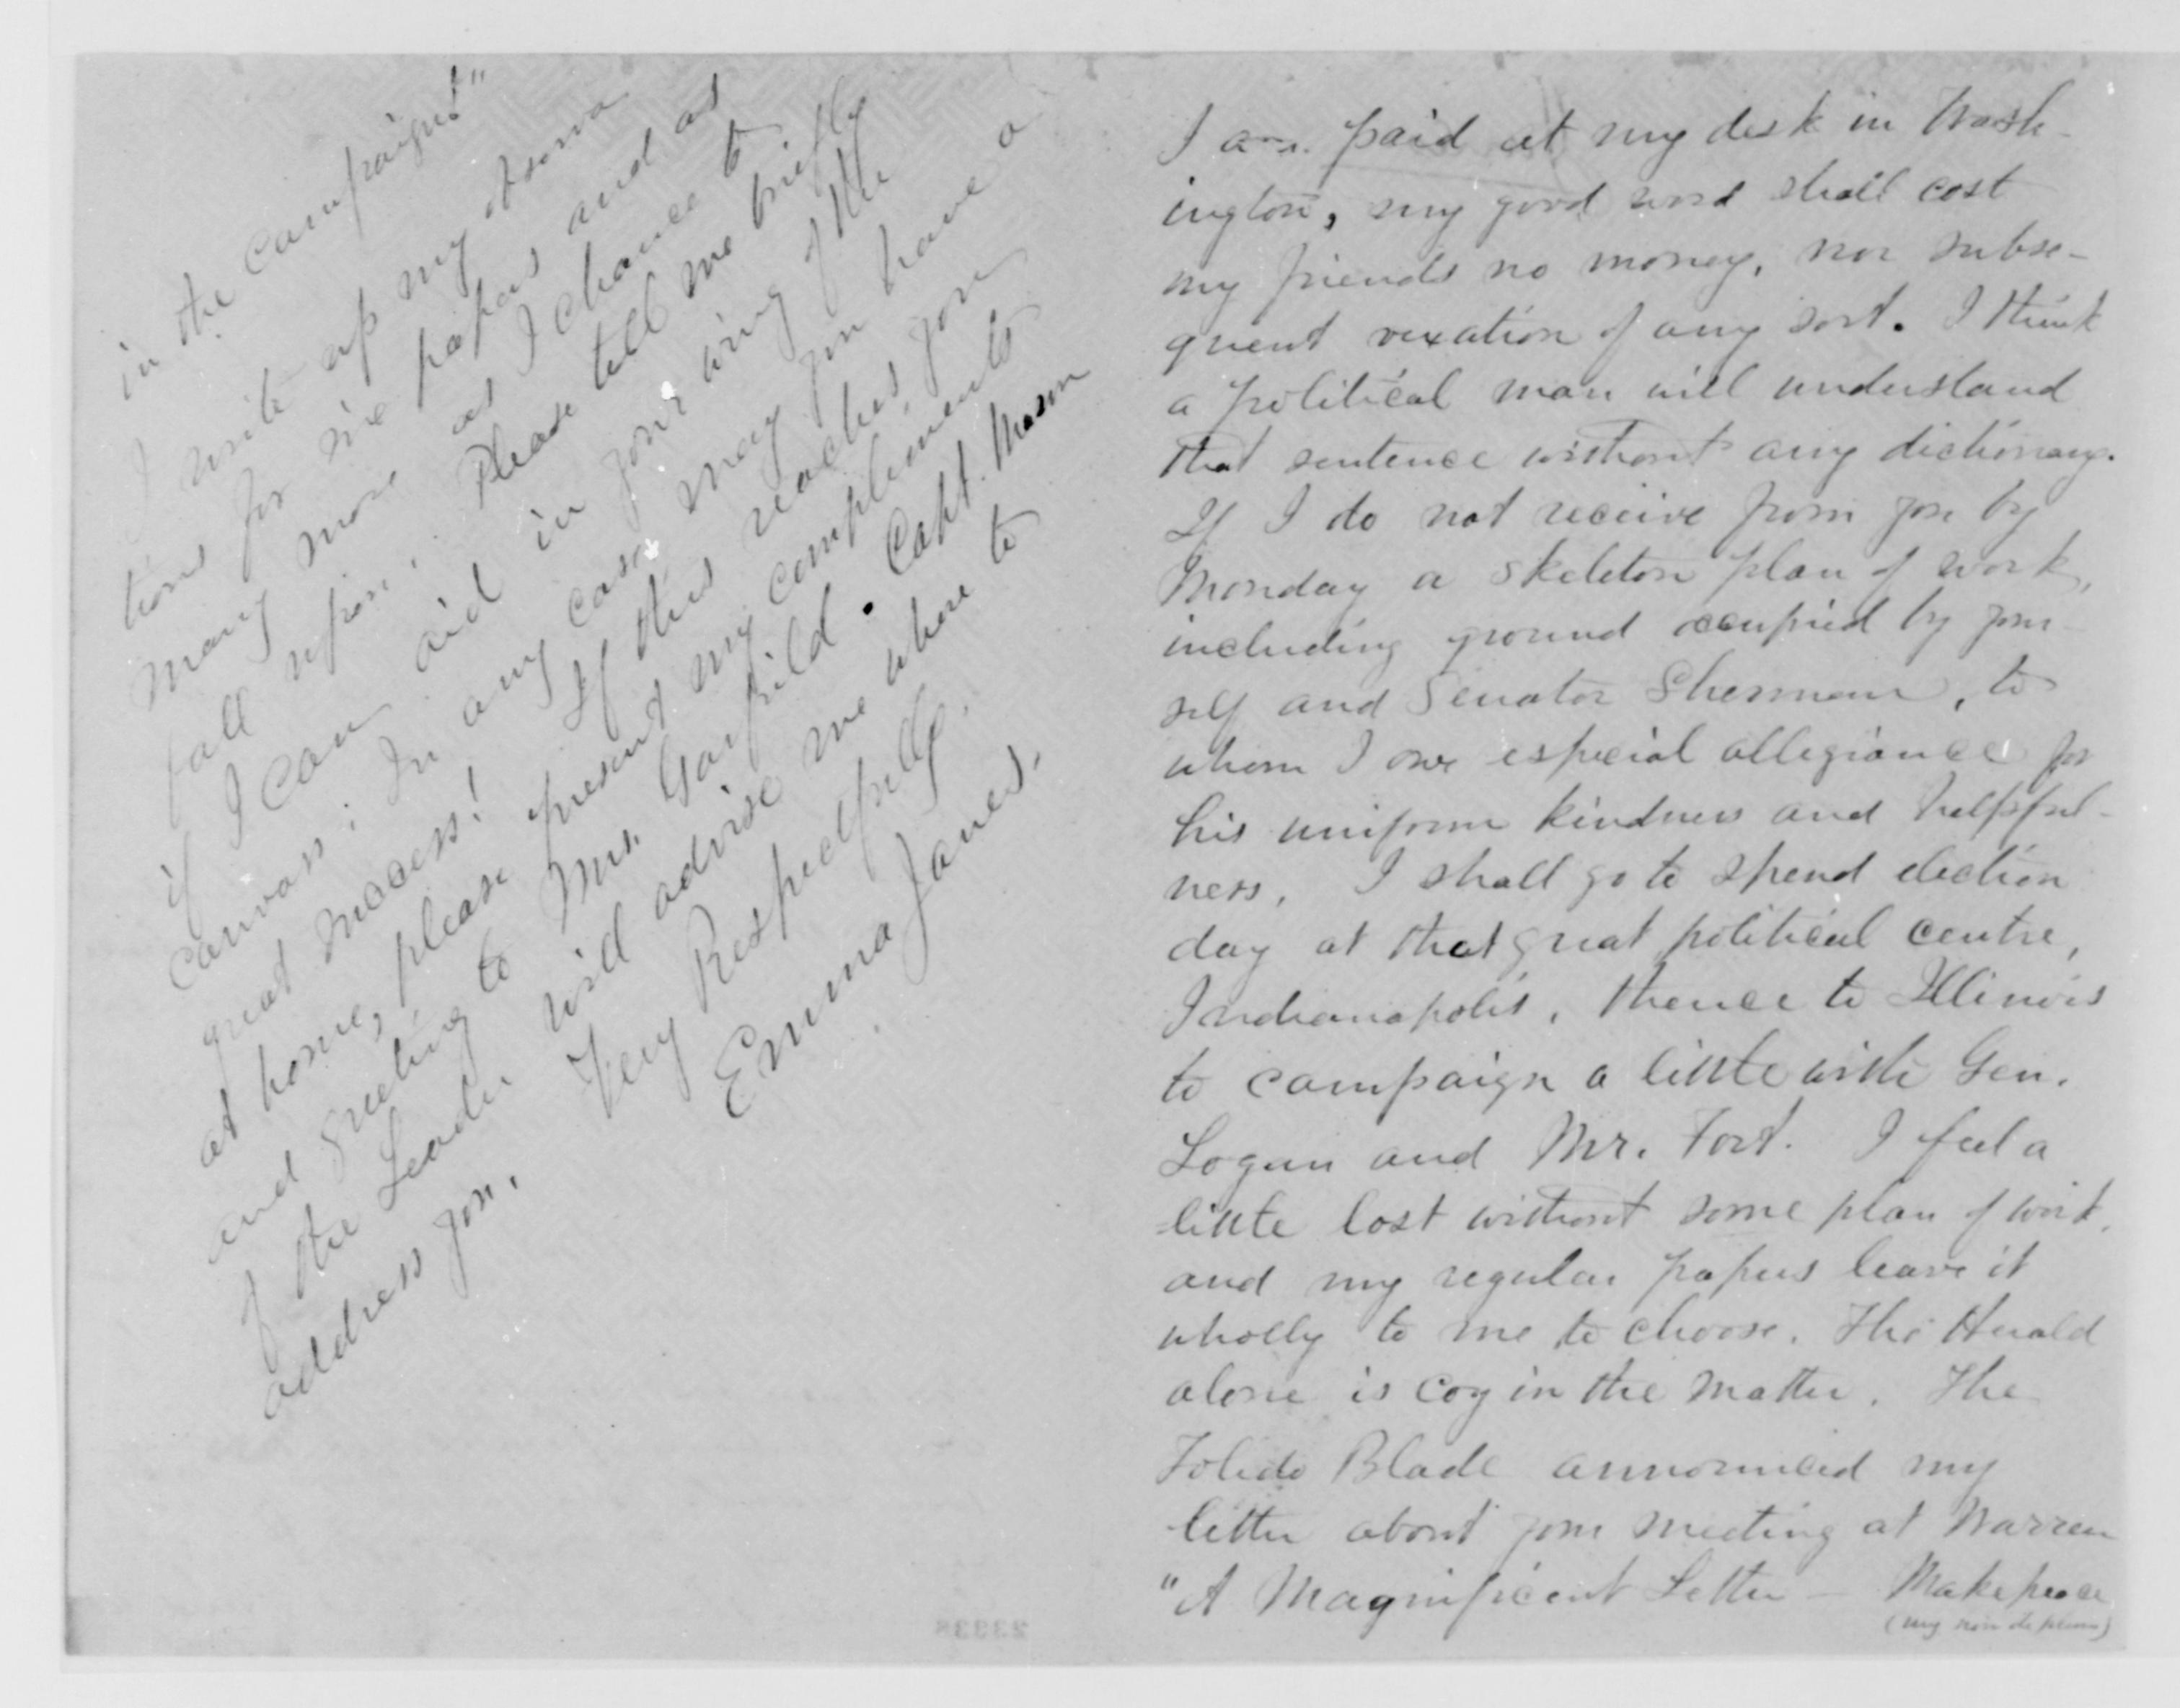 I am paid at my desk in Wash-
ington, my good word shall cost
my friends no money, nor subse-
quent vexation of any sort. I think
a political man will understand
that sentence without any dictionary.
If I do not receive from you by
Monday a skeleton plan of work,
including ground occupied by your-
self and Senator Sherman, to
whom I owe especial allegiance for
his uniform kindness and helpful-
ness. I shall go to spend election
day at that great political centre,
Indianapolis, thence to Illinois
to campaign a little with Gen.
Logan and Mr. Fort. I feel a
little lost without some plan of work,
and my regular papers leave it
wholly to me to choose. The Herald
alone is coy in the matter. The
Toledo Blade announced my
letter about your meeting at Warren
"A Magnificent Letter — Makepeace
(my nom de plume)
in the campaign!"
I write up my observa
tions for six papers and as
many more as I chance to
fall upon. Please tell me briefly
if I can aid in your wing of the
canvass: In any case may you have a
great success! If this reaches you
at home, please present my compliments
and greeting to Mrs. Garfield. Capt. Mason
of the Leader will advise me where to
address you.
Very Respectfully,
Emma Janes.
23338